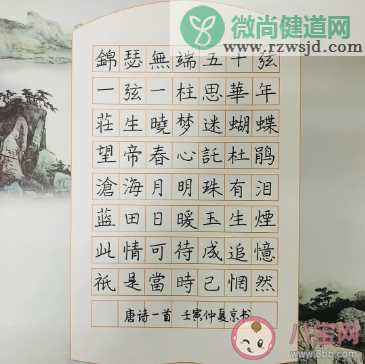 微尚健道网
www.rzwsjd.com
錦瑟無端五十弦
一弦一柱思華年
莊生曉梦迷蝴蝶
望帝春心託杜鹃
滄海月明珠有泪
蓝田日暖玉生煙
此情可待成追憶
祇是當時已惘然
唐诗一首 壬寅仲夏京书
八宝网